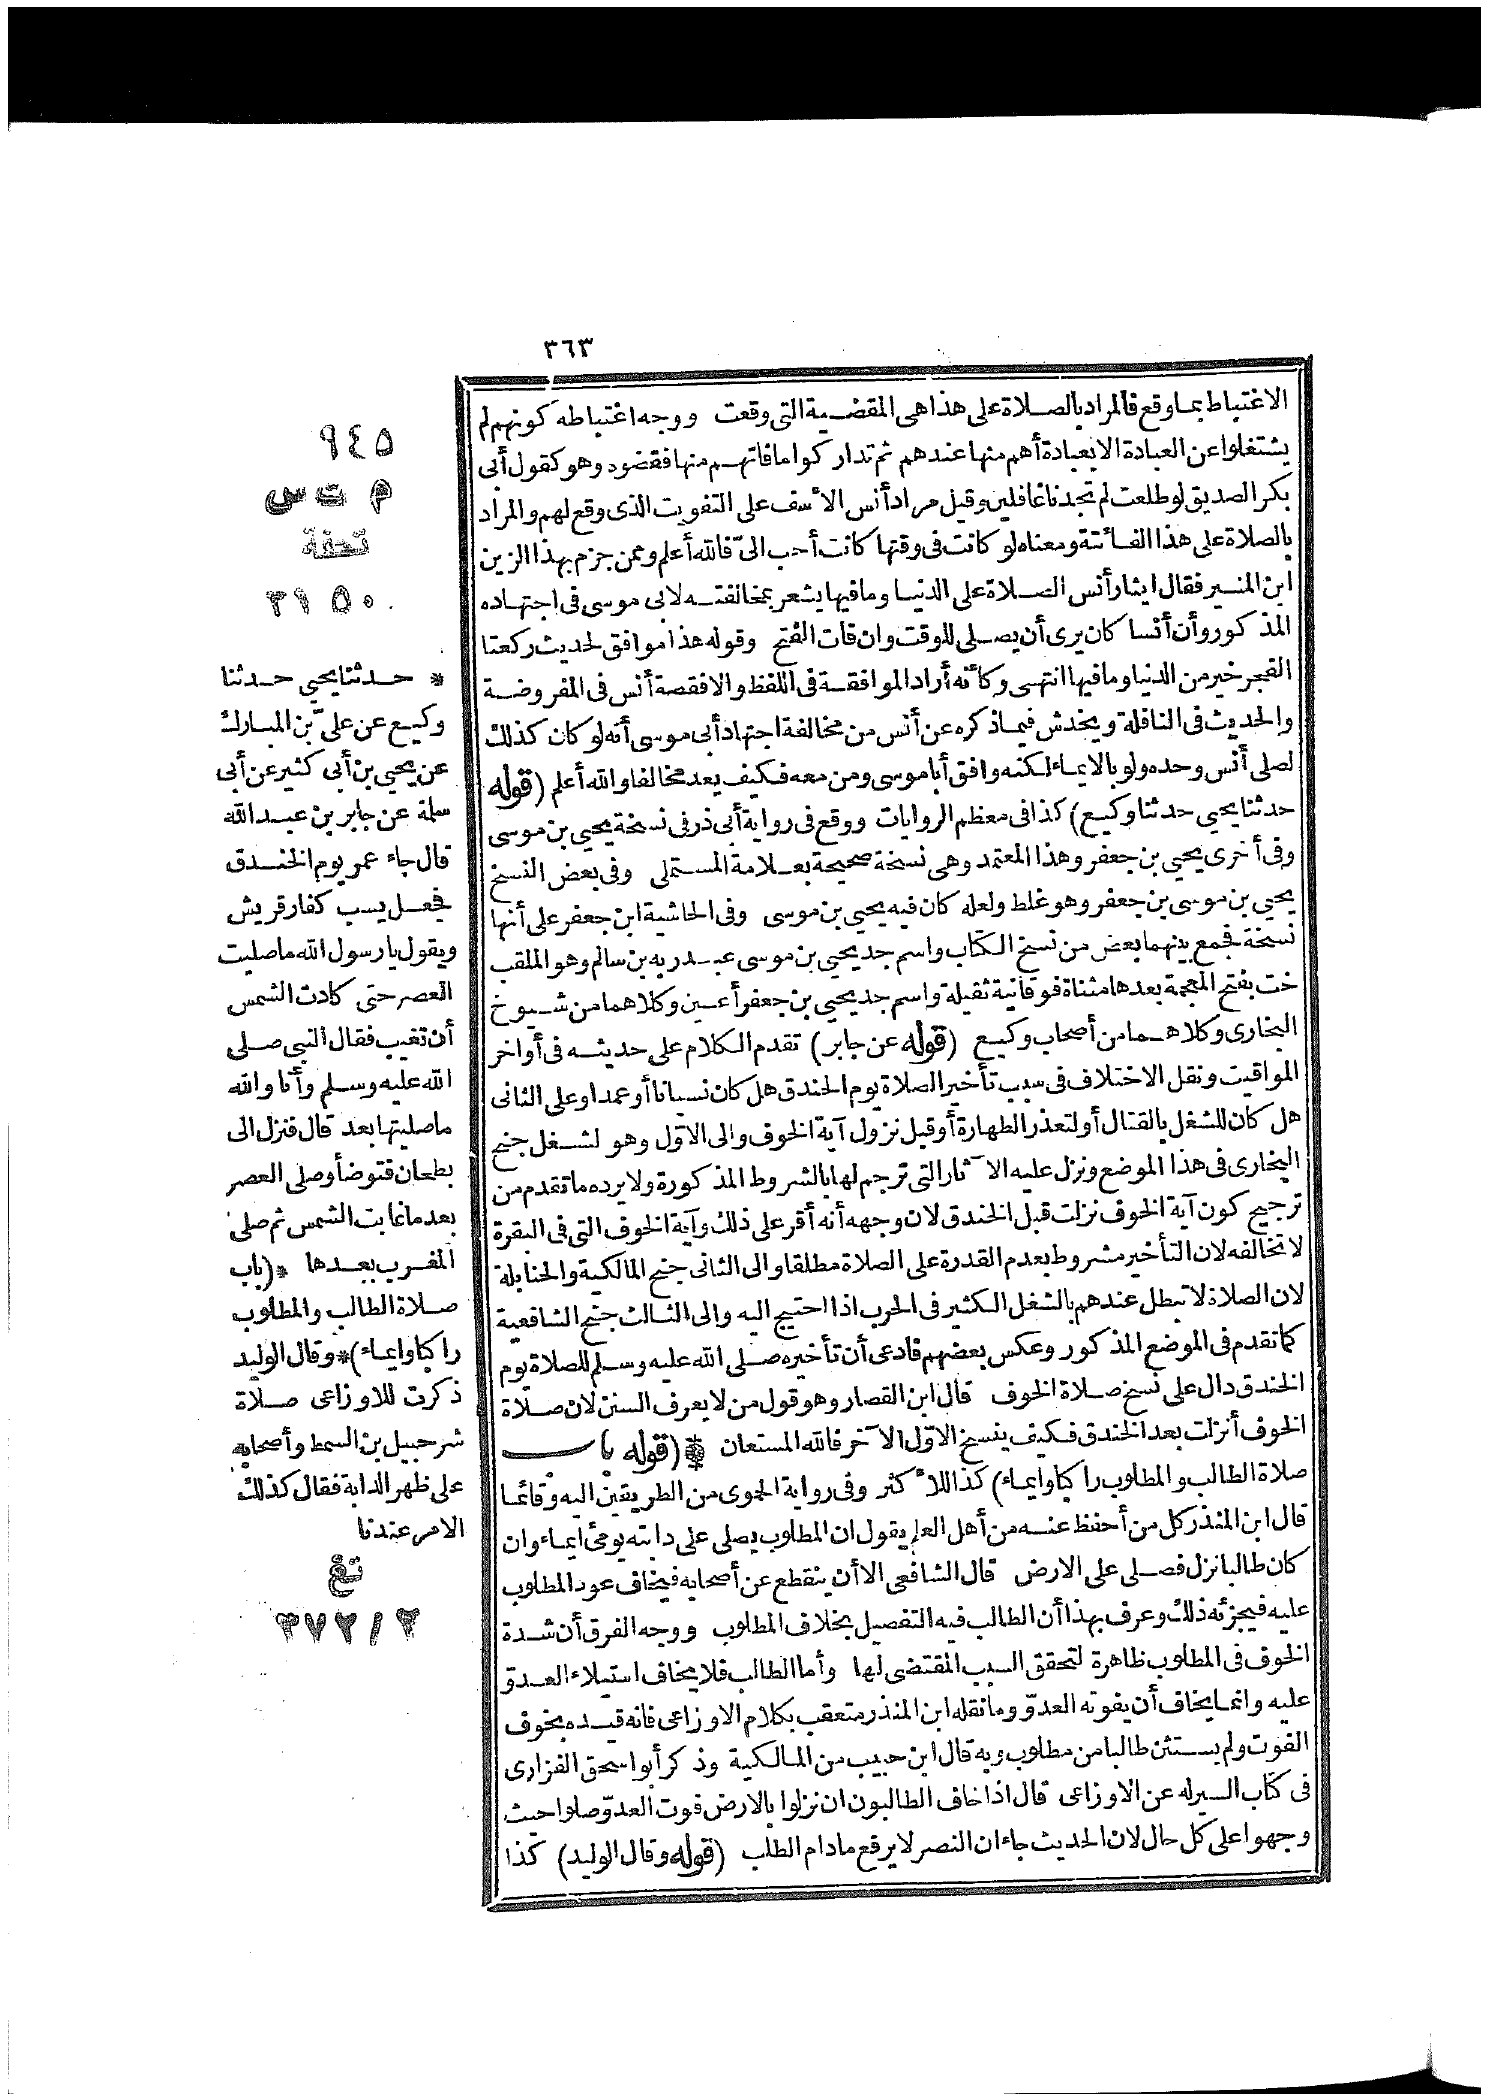 ٣٦٣
الاغتباط بما وقع فالمراد بالصلاة على هذا هى المقضية التى وقعت ووجه اغتباطه كونهم لم
يشتغلوا عن العبادة الا بعبادة أهم منها عندهم ثم تداركوا ما فاتهم منها فقضوه وهو كقول أبى
بكر الصديق لو طلعت لم تجدنا غافلين وقيل مراد أنس الأسف على التفويت الذى وقع لهم والمراد
بالصلاة على هذا الفائتة ومعناه لو كانت فى وقتها كانت أحب الىّ فالله أعلم وممن جزم بهذا الزين
ابن المنير فقال ايثار أنس الصلاة على الدنيا وما فيها يشعر بمخالفته لابى موسى فى اجتهاده
المذكور وأن أنسا كان يرى أن يصلى للوقت وان فات الفتح وقوله هذا موافق لحديث ركعتا
الفجر خير من الدنيا وما فيها انتهى وكأنه أراد الموافقة فى اللفظ والا فقصة أنس فى المفروضة
والحديث فى النافلة ويخدش فيما ذكره عن أنس من مخالفة اجتهاد أبى موسى أنه لو كان كذلك
لصلى أنس وحده ولو بالايماء لكنه وافق أبا موسى ومن معه فكيف يعد مخالفا والله أعلم (قوله
حدثنا يحيى حدثنا وكيع) كذا فى معظم الروايات ووقع فى رواية أبى ذر فى نسخة يحيى بن موسى
وفى أخرى يحيى بن جعفر وهذا المعتمد وهى نسخة صحيحة بعلامة المستملى وفى بعض النسخ
يحيى بن موسى بن جعفر وهو غلط ولعله كان فيه يحيى بن موسى وفى الحاشية ابن جعفر على أنها
نسخة فجمع بينهما بعض من نسخ الكتاب واسم جد يحيى بن موسى عبد ربه بن سالم وهو الملقب
خت بفتح المعجمة بعدها مثناة فوقانية ثقيلة واسم جد يحيى بن جعفر أعين وكلاهما من شيوخ
البخارى وكلاهما من أصحاب وكيع (قوله عن جابر) تقدم الكلام على حديثه فى أواخر
المواقيت ونقل الاختلاف فى سبب تأخير الصلاة يوم الخندق هل كان نسيانا أو عمدا وعلى الثانى
هل كان للشغل بالقتال أو لتعذر الطهارة أو قبل نزول آية الخوف والى الاوّل وهو لشغل جنح
البخارى فى هذا الموضع ونزل عليه الآثار التى ترجم لها بالشروط المذكورة ولا يرده ما تقدم من
ترجيح كون آية الخوف نزلت قبل الخندق لان وجهه أنه أقر على ذلك وآية الخوف التى فى البقرة
لا تخالفه لان التأخير مشروط بعدم القدرة على الصلاة مطلقا والى الثانى جنح المالكية والحنابلة
لان الصلاة لا تبطل عندهم بالشغل الكثير فى الحرب اذا احتيج اليه والى الثالث جنح الشافعية
كما تقدم فى الموضع المذكور وعكس بعضهم فادعى أن تأخيره صلى الله عليه وسلم للصلاة يوم
الخندق دال على نسخ صلاة الخوف قال ابن القصار وهو قول من لا يعرف السنن لان صلاة
الخوف أنزلت بعد الخندق فكيف ينسخ الاوّل الآخر فالله المستعان * (قوله باب
صلاة الطالب والمطلوب راكبا وايماء) كذا للأكثر وفى رواية الحموى من الطريقين اليه وقائما
قال ابن المنذر كل من أحفظ عنه من أهل العلم يقول ان المطلوب يصلى على دابته يومئ ايماء وان
كان طالبا نزل فصلى على الارض قال الشافعى الا أن ينقطع عن أصحابه فيخاف عود المطلوب
عليه فيجزئه ذلك وعرف بهذا أن الطالب فيه التفصيل بخلاف المطلوب ووجه الفرق أن شدة
الخوف فى المطلوب ظاهرة لتحقق السبب المقتضى لها وأما الطالب فلا يخاف استيلاء العدوّ
عليه وانما يخاف أن يفوته العدوّ وما نقله ابن المنذر متعقب بكلام الاوزاعى فانه قيده بخوف
الفوت ولم يستثن طالبا من مطلوب وبه قال ابن حبيب من المالكية وذكر أبو اسحق الفزارى
فى كتاب السير له عن الاوزاعى قال اذا خاف الطالبون ان نزلوا بالارض فوت العدوّ صلوا حيث
وجهوا على كل حال لان الحديث جاء ان النصر لا يرفع ما دام الطلب (قوله وقال الوليد) كذا
٩٤٥
م ت س
تحفة
٣١٥٠
* حدثنا يحيى حدثنا
وكيع عن علىّ بن المبارك
عن يحيى بن أبى كثير عن أبى
سلمة عن جابر بن عبد الله
قال جاء عمر يوم الخندق
فجعل يسب كفار قريش
ويقول يا رسول الله ما صليت
العصر حتى كادت الشمس
أن تغيب فقال النبى صلى
الله عليه وسلم وأنا والله
ما صليتها بعد قال فنزل الى
بطحان فتوضأ وصلى العصر
بعد ما غابت الشمس ثم صلى
المغرب بعدها *(باب
صلاة الطالب والمطلوب
راكبا وايماء)* وقال الوليد
ذكرت للاوزاعى صلاة
شرحبيل بن السمط وأصحابه
على ظهر الدابة فقال كذلك
الامر عندنا
تغ
٣٧٢/٢